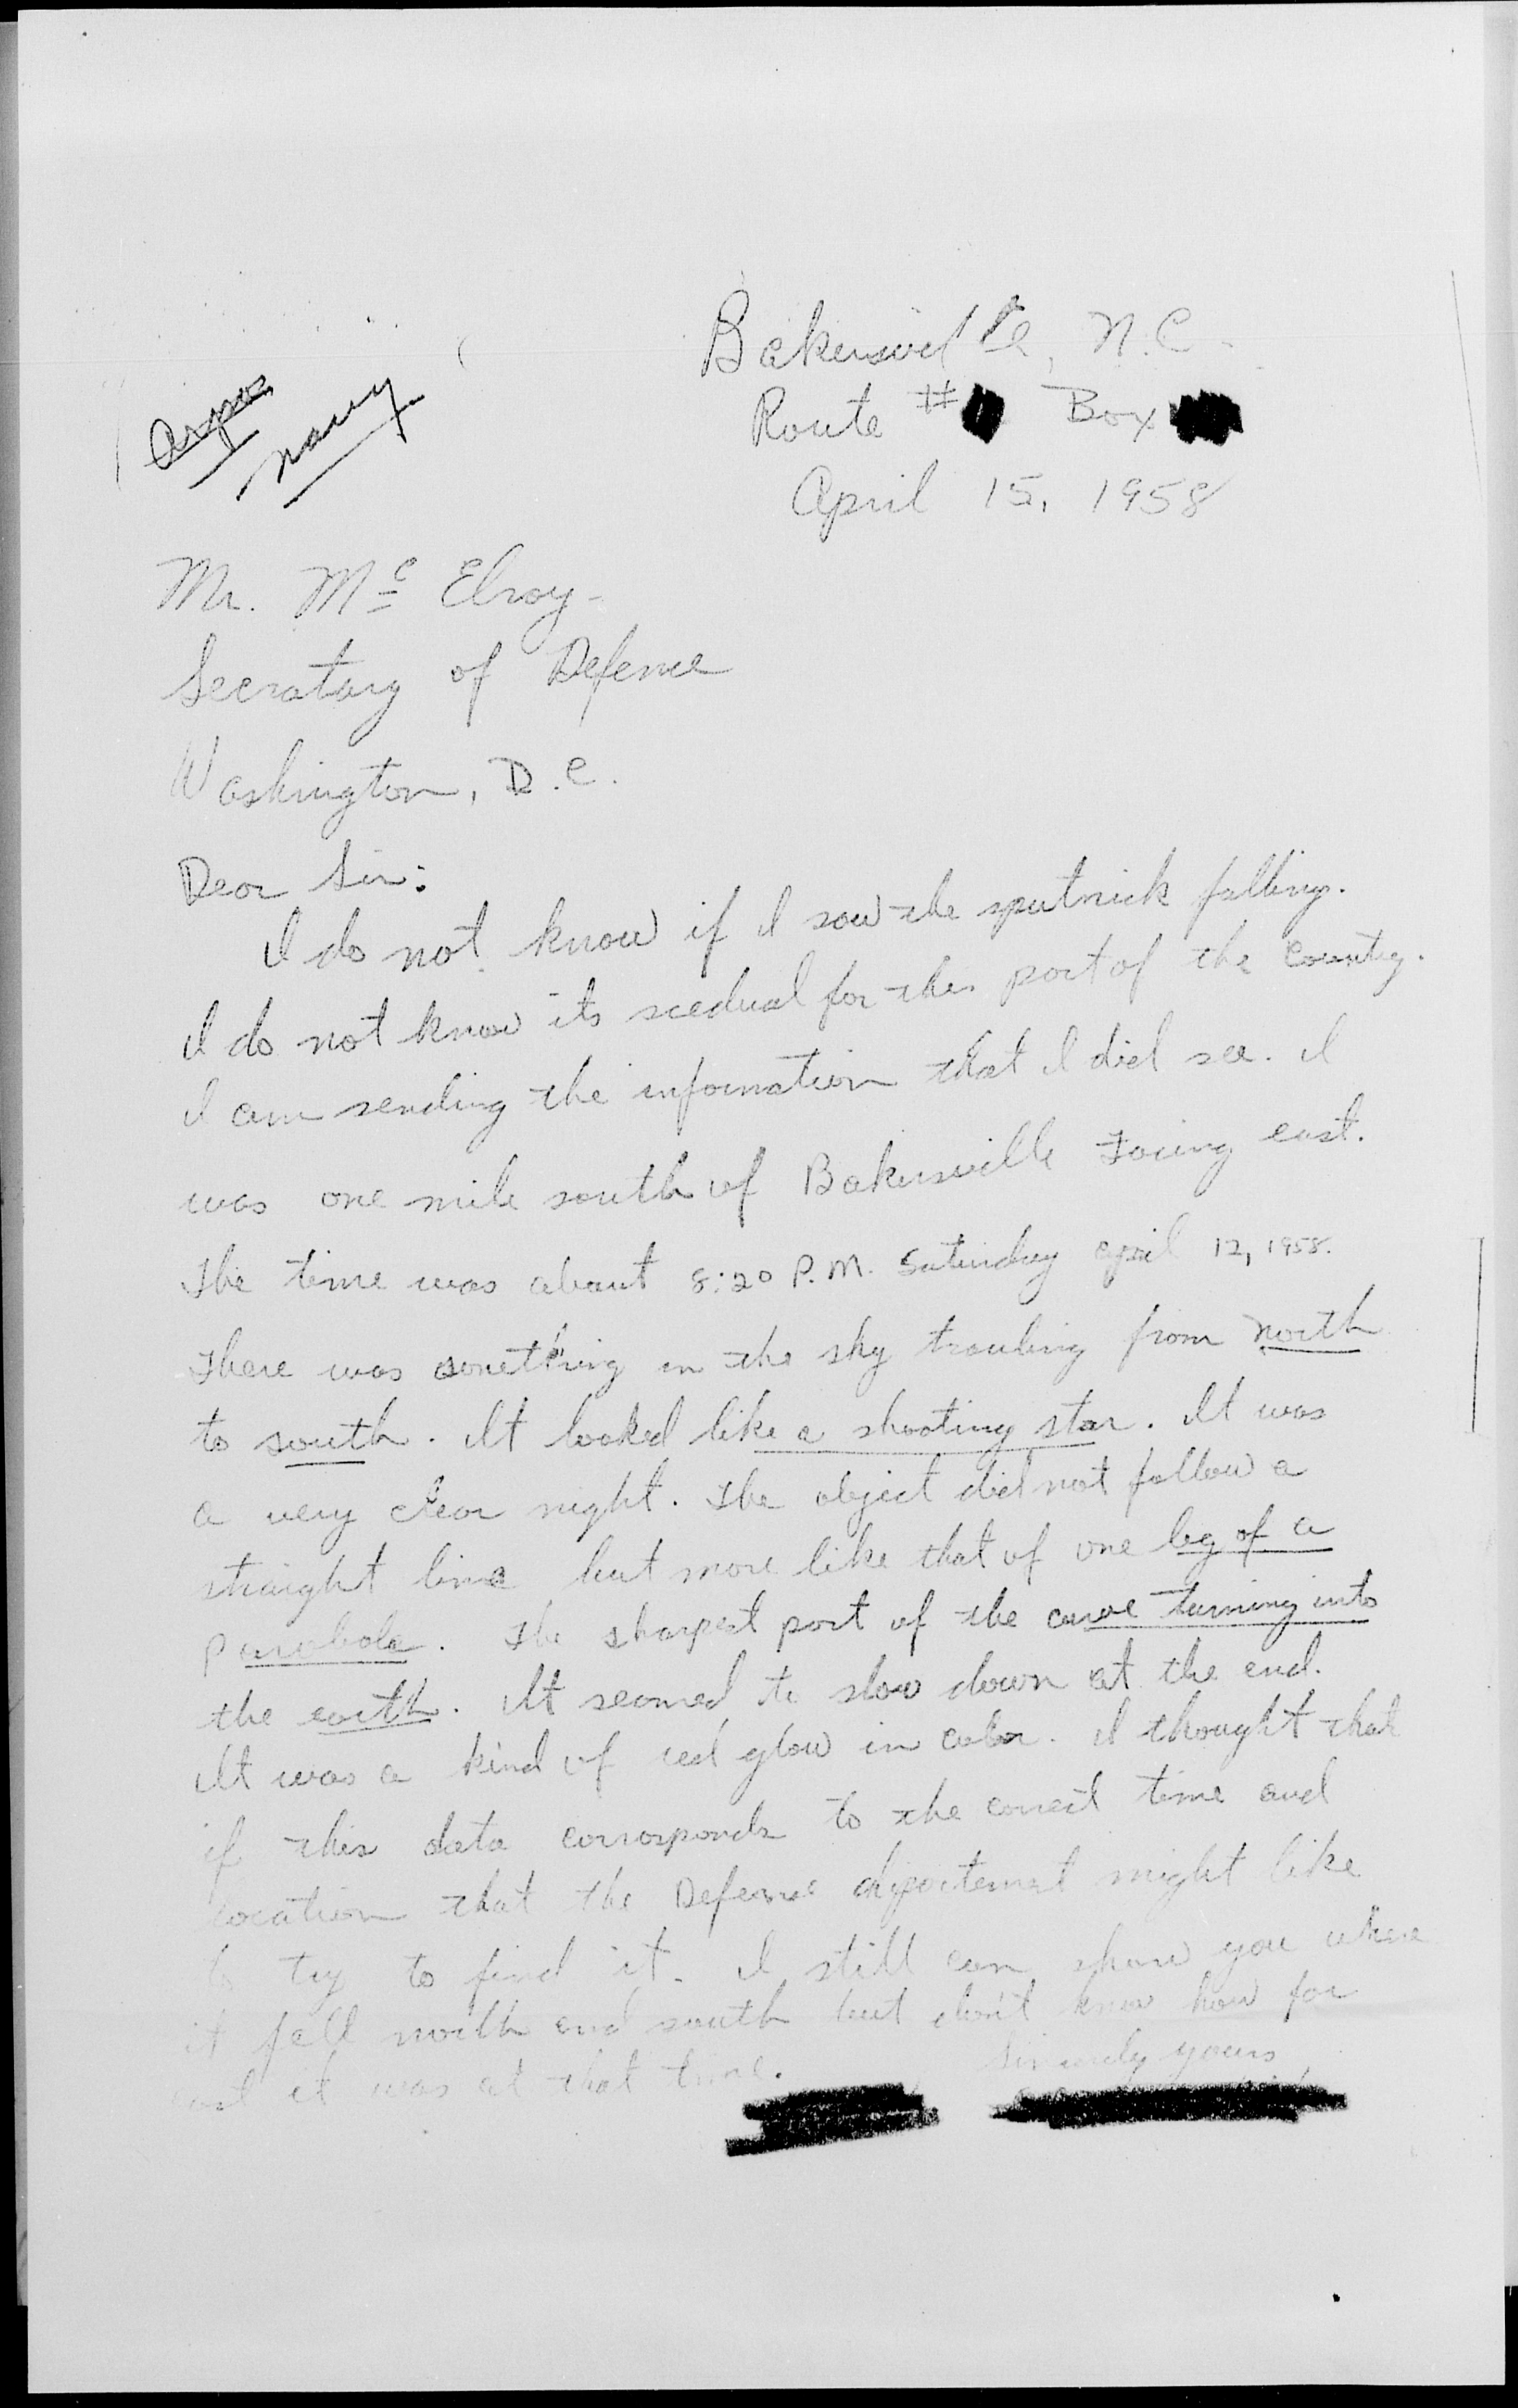 Bakersville, N.C.
Route # Box
April 15, 1958
Arpa
navy
Mr. Mc Elroy
Secratary of Defence
Washington, D.C.
Dear Sir:
I do not know if I saw the sputnick falling.
I do not know its scedual for this part of the country.
I am sending the information that I did see. I
was one mile south of Bakersville facing east.
The time was about 8:20 P.M. Saturday April 12, 1958.
There was something in the sky travling from north
to south. It looked like a shooting star. It was
a very clear night. The object did not follow a
straight line but more like that of one leg of a
parabola. The sharpest part of the curve turning into
the earth. It seemed to slow down at the end.
It was a kind of red glow in color. I thought that
if this data corrosponds to the correct time and
location that the Defense might like
to try to find it. I still can show you where
it fell north and south but don't know how far
east it was at that time.
Sincerely yours